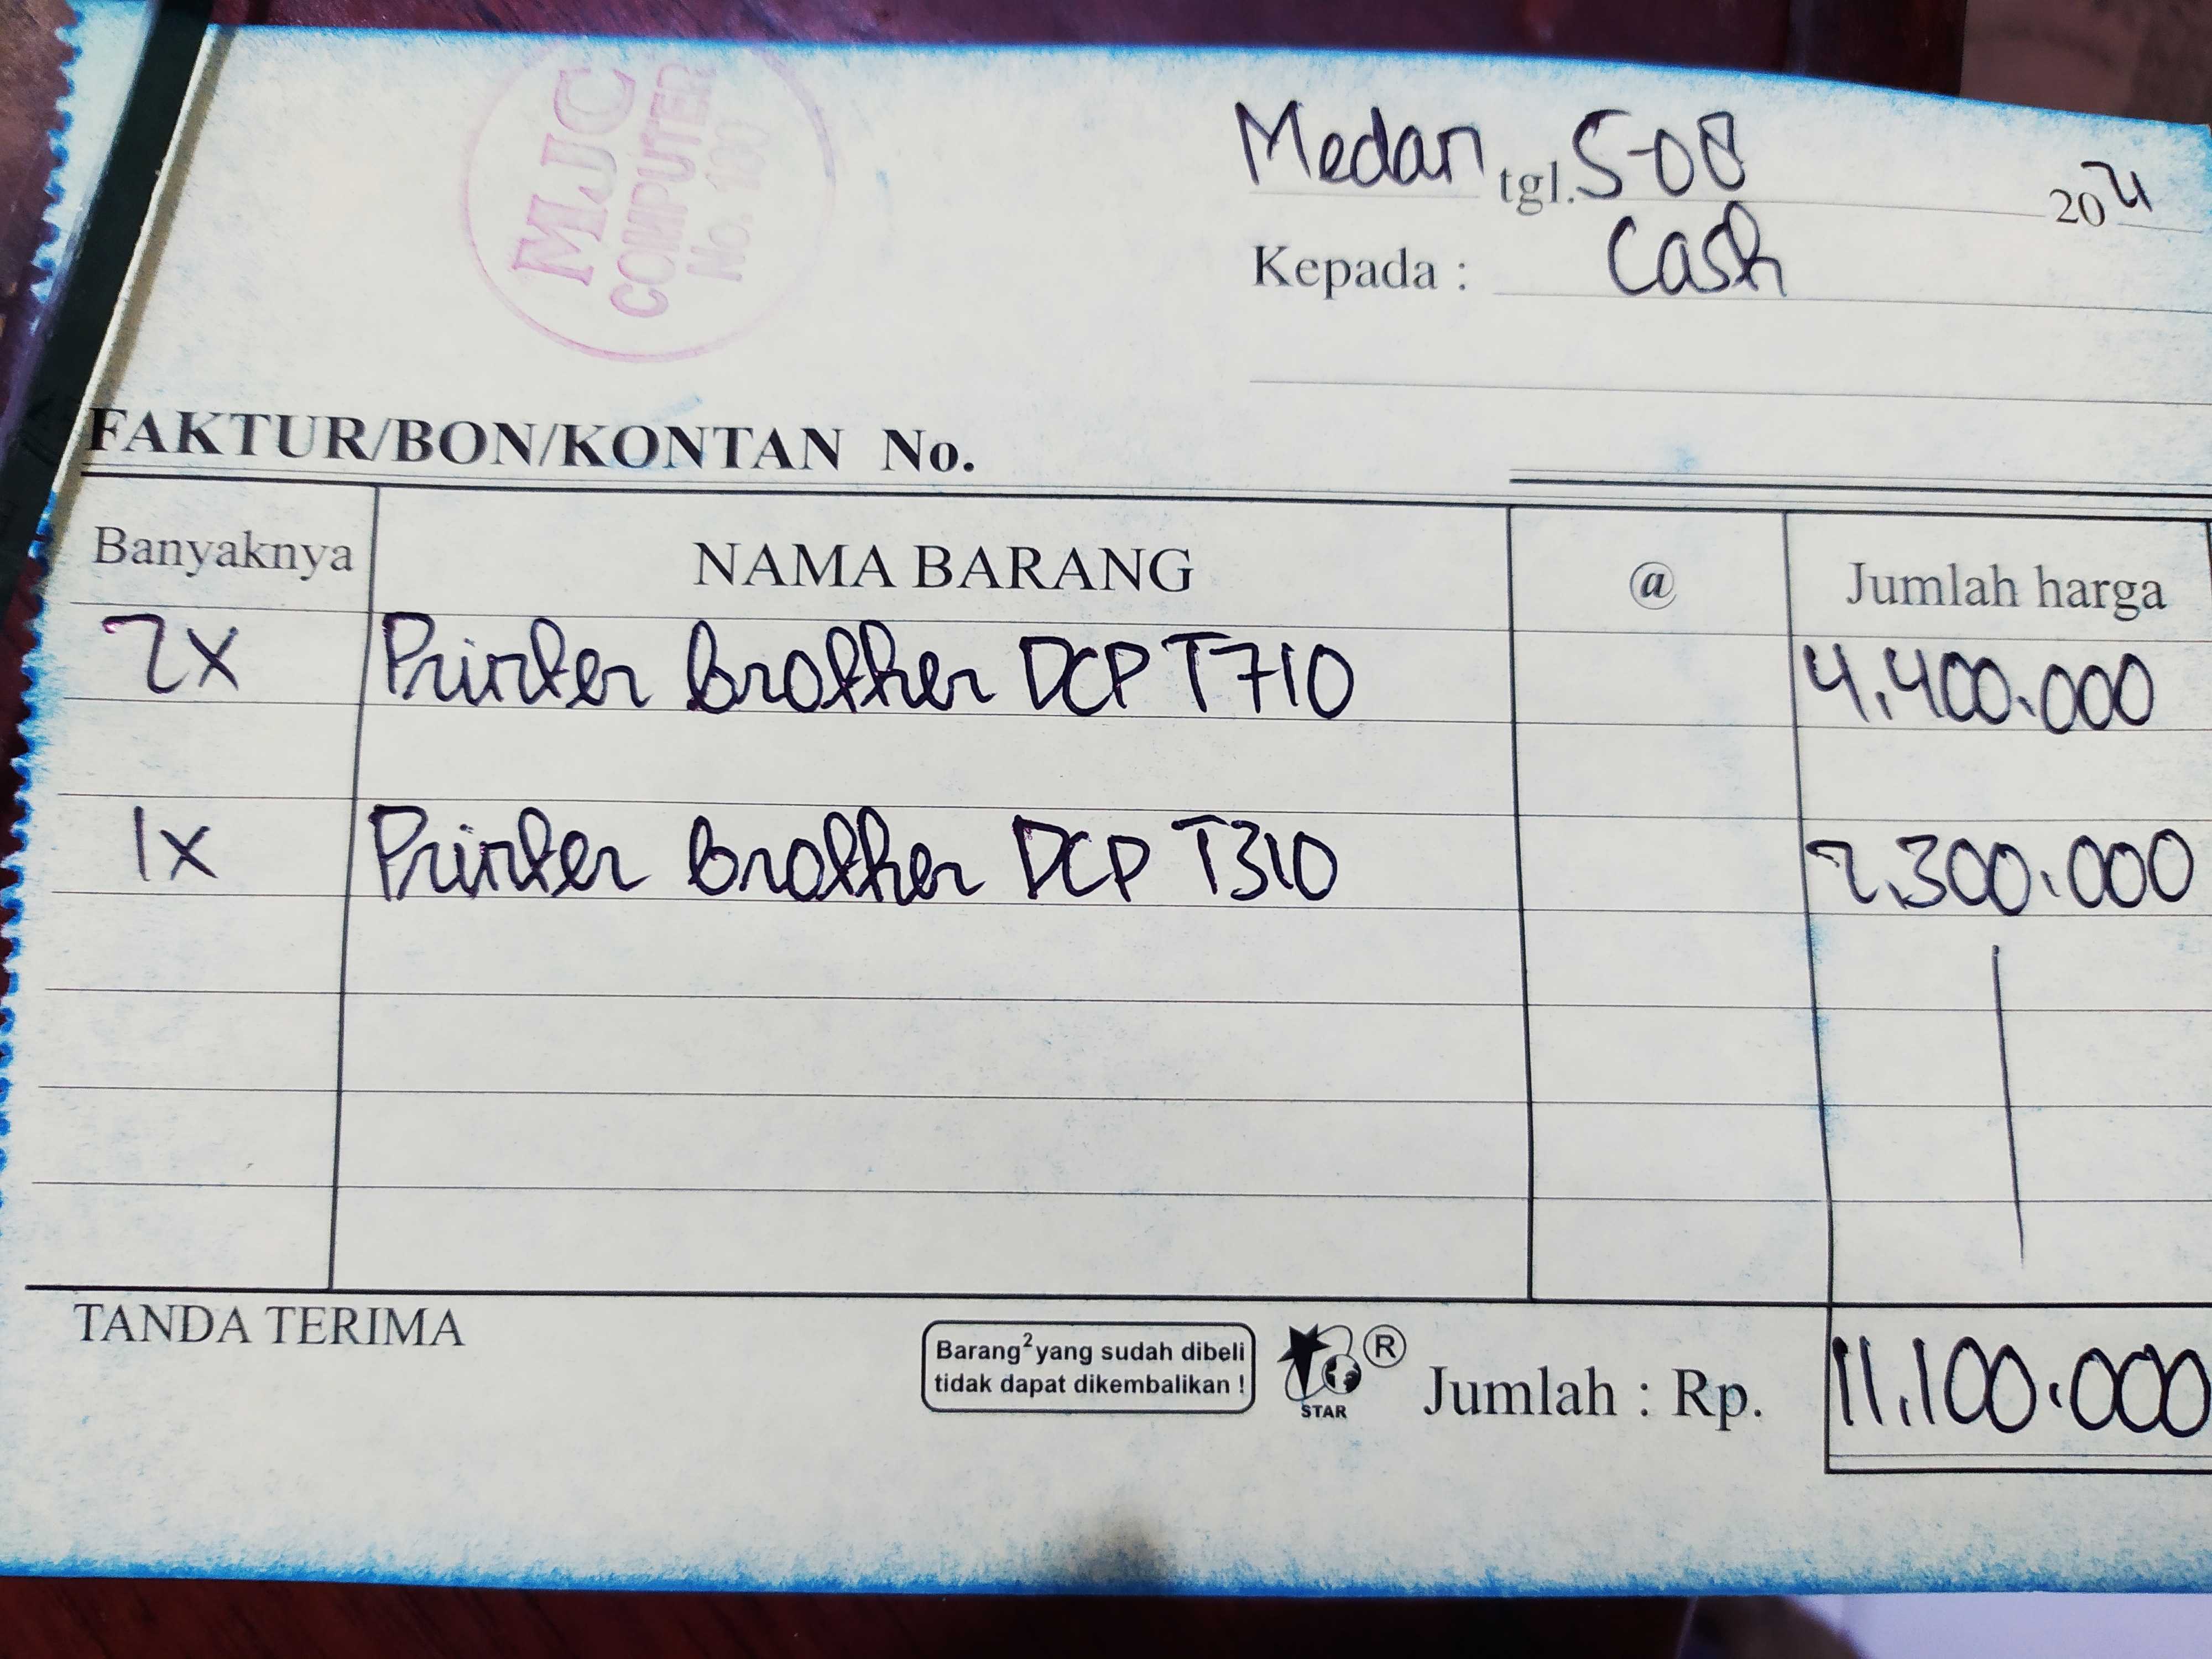 MJC
COMPUTER
No. 100
Medan tgl. 5-08 2021
Kepada : Cash
FAKTUR/BON/KONTAN No.
Banyaknya NAMA BARANG @ Jumlah harga
2x Printer brother DCP T710 4.400.000
1x Printer brother DCP T310 2.300.000
TANDA TERIMA
Barang² yang sudah dibeli
tidak dapat dikembalikan !
STAR
®
Jumlah : Rp. 11.100.000